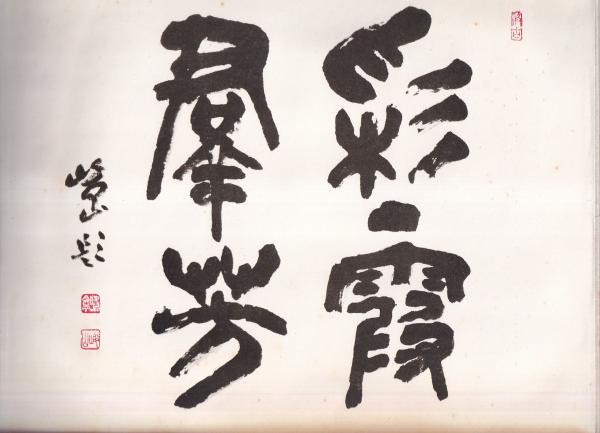 彩霞
羣芳
題